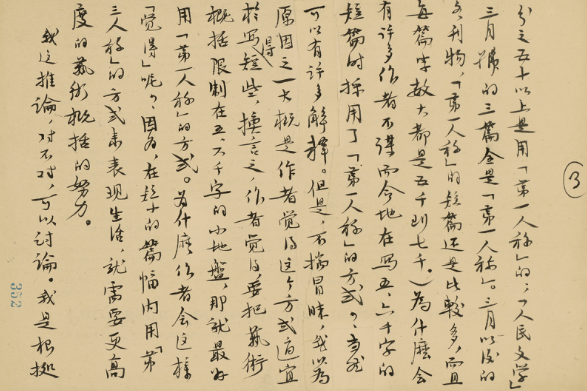 ③
分之五十以上是用「第一人称」的;(人民文学
三月号的三篇全是「第一人称」。三月以后的
多刊物,「第一人称」的短篇还是比较多,而且
每篇字数大都是五千到七千。)为什么会
有许多作者不谋而合地在写五、六千字的
短篇时采用了「第一人称」的方式?当然
可以有许多解释。但是,不揣冒昧,我以为
原因之一大概是作者觉得这个方式适宜
于写得短些,换言之,作者觉得要把艺术
概括限制在五、六千字的小地盘,那就最好
用「第一人称」的方式。为什么作者会这样
「觉得」呢?因为,在短小的篇幅内用「第
三人称」的方式来表现生活,就需要更高
度的艺术概括的努力。
我这推论,对不对,可以讨论。我是根据
352